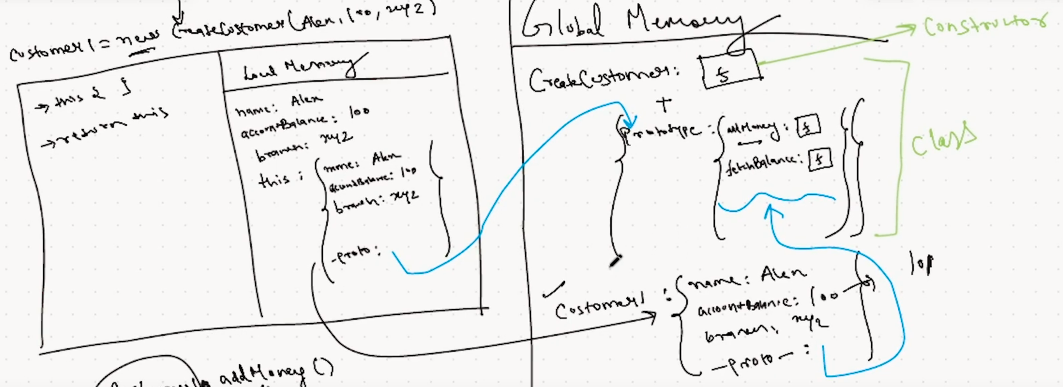 Customer1 = new CreateCustomer(Alex, 100, xyz)
→ this { }
→ return this
Local Memory
name: Alex
accountBalance: 100
branch: xyz
this: {
name: Alex
accountBalance: 100
branch: xyz
-proto:
}
addMoney()
Global Memory
CreateCustomer: f
→ Constructor
+
{ prototype: { addMoney: f
fetchBalance: f } }
Class
✓ Customer1: { name: Alex
accountBalance: 100 →
branch: xyz
-proto-: }